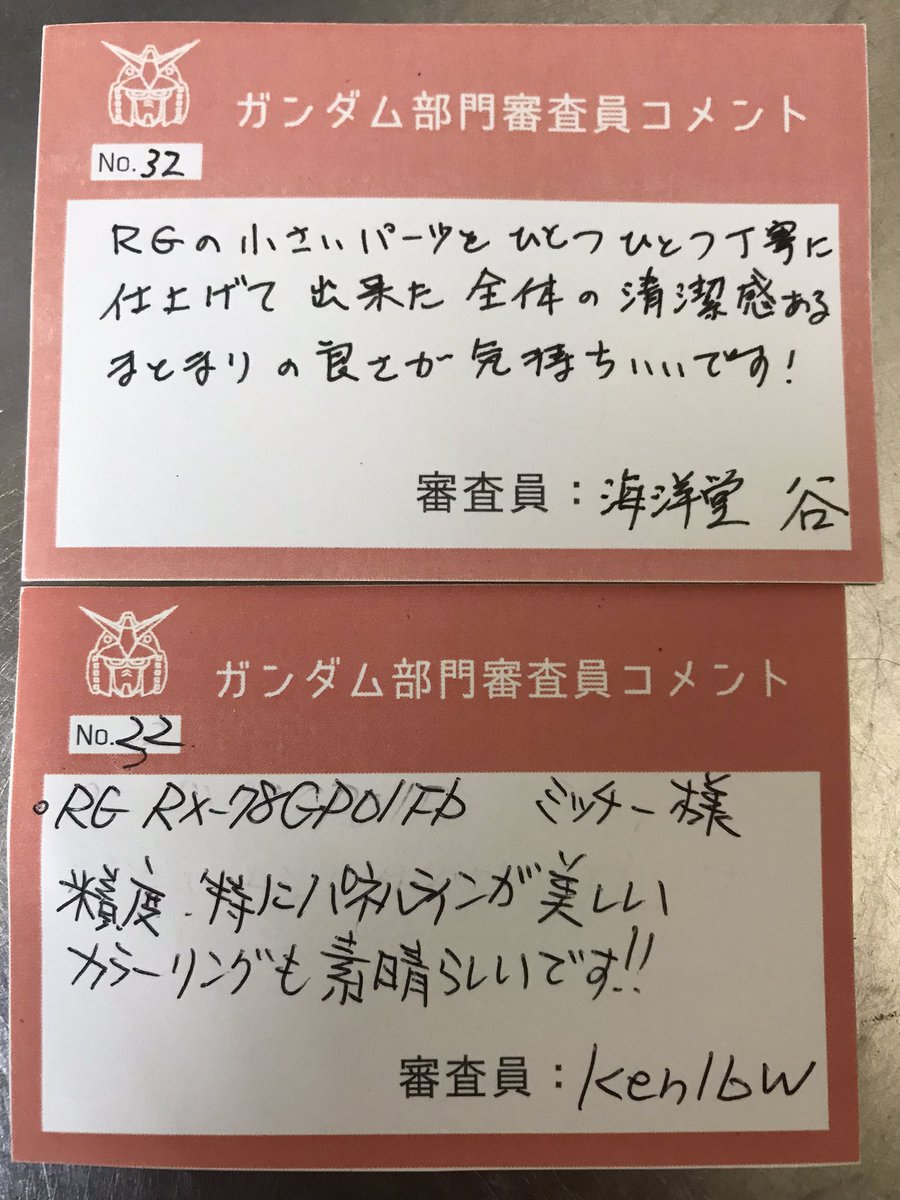 ガンダム部門審査員コメント
No.32
RGの小さいパーツをひとつひとつ丁寧に
仕上げて出来た全体の清潔感ある
まとまりの良さが気持ちいいです!
審査員：海洋堂 谷
ガンダム部門審査員コメント
No.32
RG RX-78GP01Fb ミッチー様
精度、特にパネルラインが美しい
カラーリングも素晴らしいです!!
審査員：Ken16W